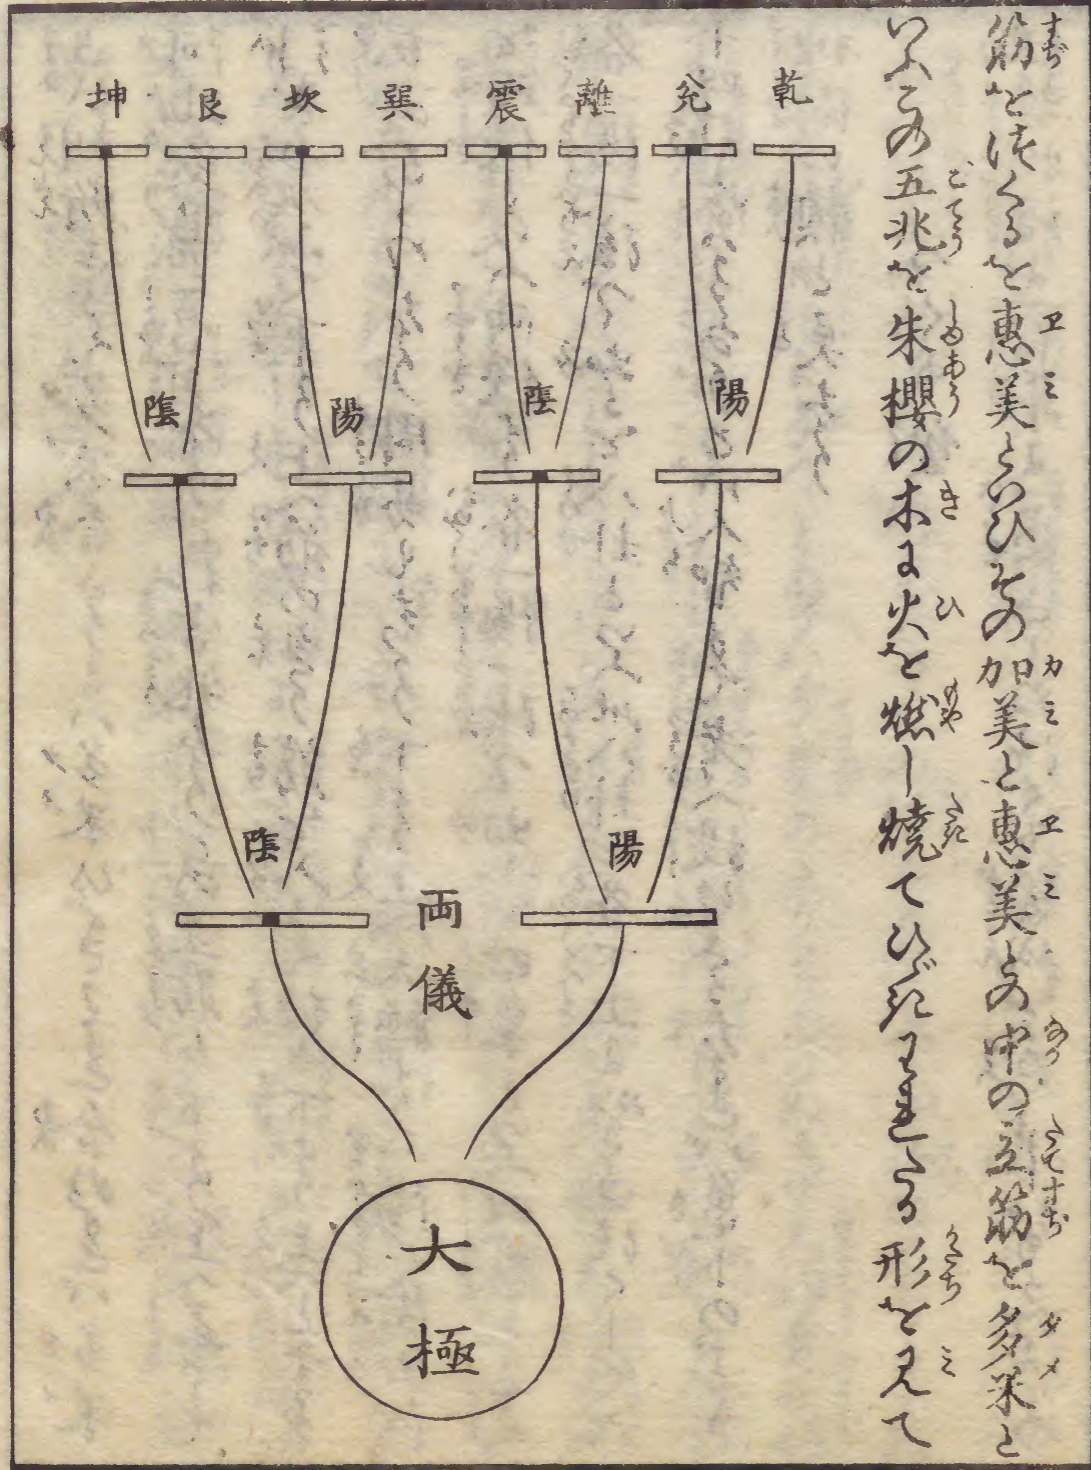 筋を法くるを惠美といひその加美と惠美との中の立筋を多米と
いふこの五兆を朱櫻の木に火を燃し燒てひゞきわれたる形を見て
乾 兌 離 震 巽 坎 艮 坤
陽 陰 陽 陰
陽 陰
両儀
大極